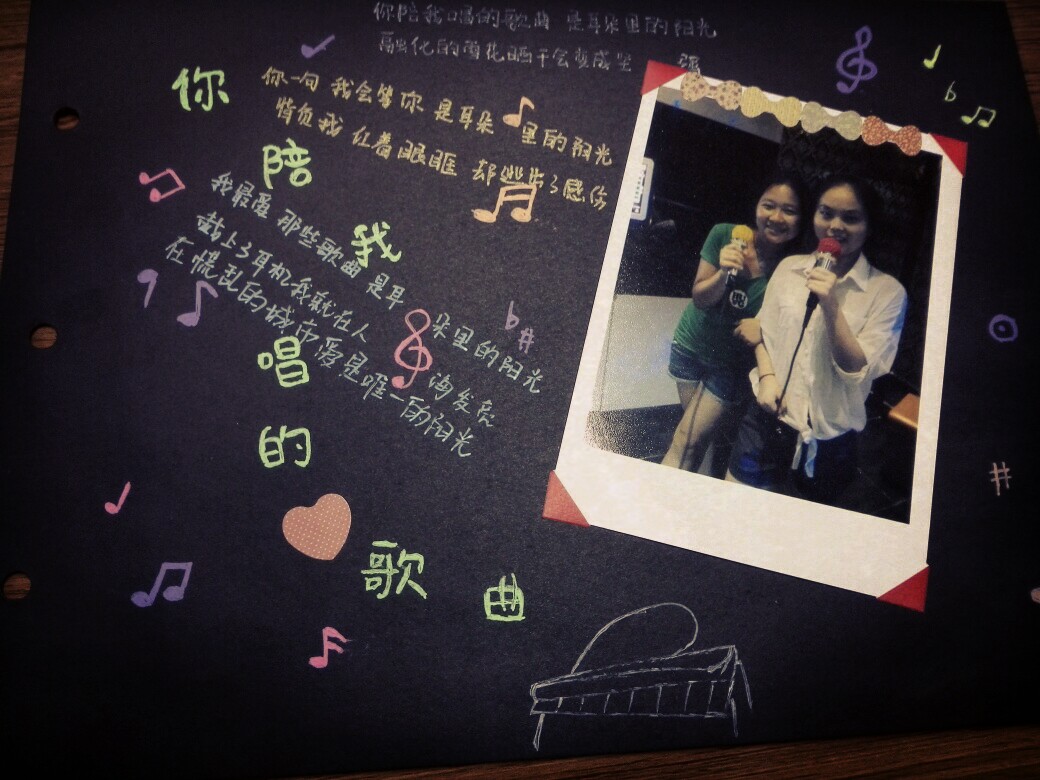 你陪我唱的歌曲 是耳朵里的阳光
融化的雪花晒干会变成坚 强
你一句 我会等你 是耳朵 里的阳光
背负我 红着眼眶 却 了感伤
我最爱 那些歌曲 是耳 朵里的阳光
戴上了耳机我就在人 海发亮
在慌乱的城市爱是唯一的阳光
你
陪
我
唱
的
歌 曲